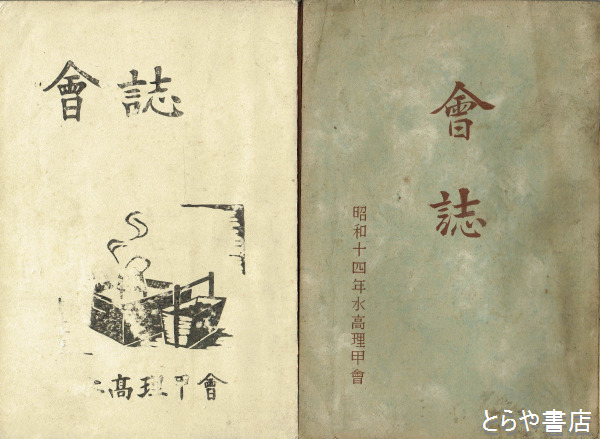 會誌
高理甲會
會誌
昭和十四年水高理甲會
とらや書店